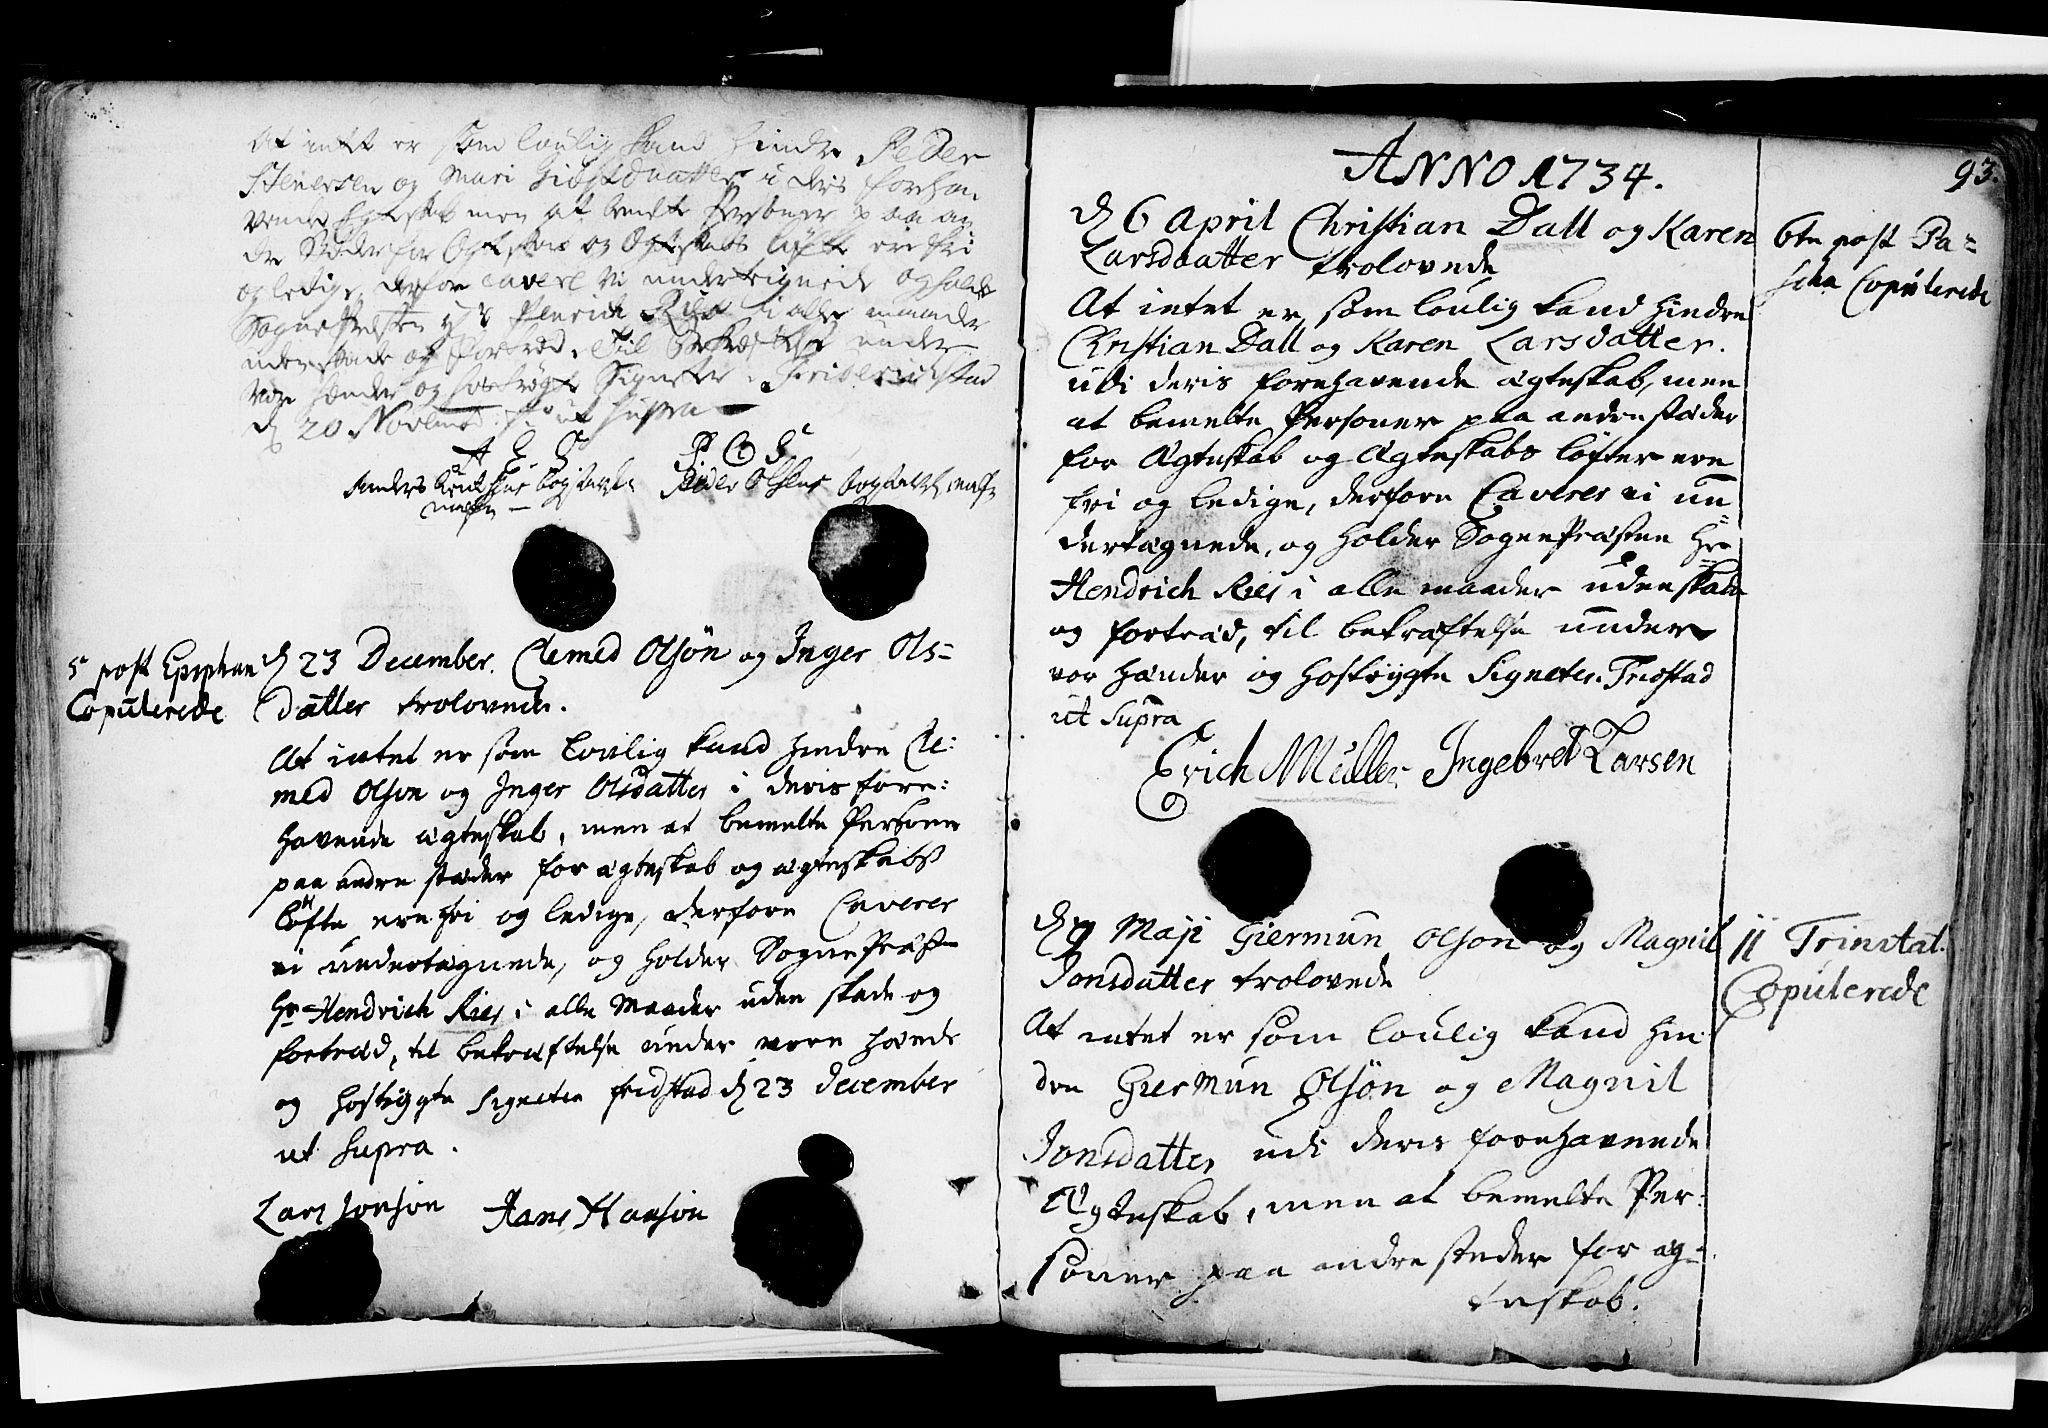 At intet er som loulig kand hindre Peder
Stenersen og Mari Giöstdaatter i deris foreha
vende Egteskab men at bemelte Personer paa an
dre Stæder for Egteskab og Egteskabs løfte ere fri
og ledige, derfore cavere Vi undertegnede og holde
Sogne Præsten Hr Henrich Ries i alle maader
uden skade og Fortred. Til Bekræftelse under
Vore hænder og hoströgte Signeter. Friderichstad
d 20 Novembr: ut supra
A E S P O S
Anders bogstaver
Peder Olsens bogstaver
5 post Epiphan
Copulerede
d 23 December. Clemed Olsön og Inger Ols=
Datter trolovede.
At intet er som lovlig kand hindre Cle:
med Olsön og Inger Olsdatter i deris fore:
havende ægteskab, men at bemelte Persone
paa andre stæder for ægteskab og ægteskabs
løfte ere fri og ledige, derfore Caverer
vi undertægnede, og holder Sogne Præst
Hr Hendrich Ries i alle Maader uden skade og
fortræd, til bekræftelse under vore hænde
og hostrygte Signeter fridstad d 23 december
ut supra.
Lars Jonsön Hans Hansön
93.
ANNO 1734.
d 6 April Christian Dall og Karen
Larsdaatter trolovede
6te post Pa=
scha Copulerede
At intet er som loulig kand hindre
Christian Dall og Karen Larsdatter.
udi deris forehavende ægteskab, men
at bemelte Personer paa andre stæder
for Ægteskab og Ægteskabs løfter ere
fri og ledige, derfore Caverer vi un
dertægnede, og holder Sogne Præsten Hr
Hendrich Ries i alle maader uden skade
og fortræd, til bekræftelse under
vor hænder og hostrygte Signeter. Fridstad
ut Supra
Erich Müller Ingebret Larsen
d 7 Maji Giermun Olson og Magnil
Jonsdatter trolovede
11 Trinitat.
Copulerede
At intet er som loulig kand hin
dre Giermun Olsön og Magnil
Jonsdatter udi deris forehavende
Ægteskab, men at bemelte Per:
soner paa andre steder for æg=
teskab.